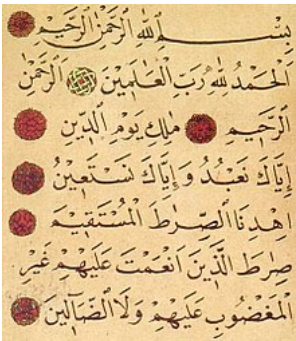 بِسْمِ اللهِ الرَّحْمٰنِ الرَّحِيْمِ
اَلْحَمْدُ لِلّٰهِ رَبِّ الْعَالَمِيْنَ الرَّحْمٰنِ
الرَّحِيْمِ مٰلِكِ يَوْمِ الدِّيْنِ
اِيَّاكَ نَعْبُدُ وَاِيَّاكَ نَسْتَعِيْنُ
اِهْدِنَا الصِّرَاطَ الْمُسْتَقِيْمَ
صِرَاطَ الَّذِيْنَ اَنْعَمْتَ عَلَيْهِمْ غَيْرِ
الْمَغْضُوْبِ عَلَيْهِمْ وَلَا الضَّالِّيْنَ